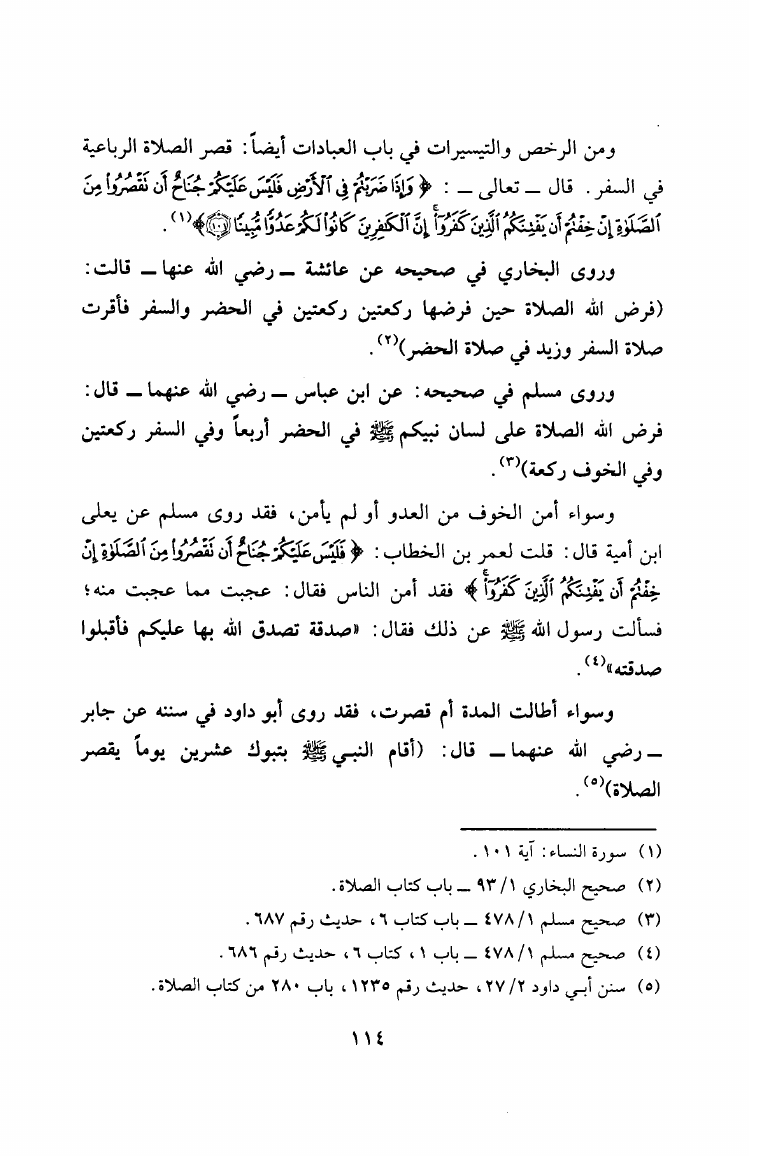 ومن الرخص والتيسيرات في باب العبادات أيضاً: قصر الصلاة الرباعية
في السفر. قال ــ تعالى ــ : ﴿ وَإِذَا ضَرَبْتُمْ فِي ٱلْأَرْضِ فَلَيْسَ عَلَيْكُمْ جُنَاحٌ أَن نَقْصُرُوا۟ مِنَ
ٱلصَّلَوٰةِ إِنْ خِفْتُمْ أَن يَفْتِنَكُمُ ٱلَّذِينَ كَفَرُوٓا۟ ۚ إِنَّ ٱلْكَٰفِرِينَ كَانُوا۟ لَكُمْ عَدُوًّا مُّبِينًا ﴿١٠١﴾ ﴾(١).
وروى البخاري في صحيحه عن عائشة ــ رضي الله عنها ــ قالت:
(فرض الله الصلاة حين فرضها ركعتين ركعتين في الحضر والسفر فأقرت
صلاة السفر وزيد في صلاة الحضر)(٢).
وروى مسلم في صحيحه: عن ابن عباس ــ رضي الله عنهما ــ قال:
فرض الله الصلاة على لسان نبيكم ﷺ في الحضر أربعاً وفي السفر ركعتين
وفي الخوف ركعة)(٣).
وسواء أمن الخوف من العدو أو لم يأمن، فقد روى مسلم عن يعلى
ابن أمية قال: قلت لعمر بن الخطاب: ﴿ فَلَيْسَ عَلَيْكُمْ جُنَاحٌ أَن نَقْصُرُوا۟ مِنَ ٱلصَّلَوٰةِ إِنْ
خِفْتُمْ أَن يَفْتِنَكُمُ ٱلَّذِينَ كَفَرُوٓا۟ ۚ ﴾ فقد أمن الناس فقال: عجبت مما عجبت منه؛
فسألت رسول الله ﷺ عن ذلك فقال: «صدقة تصدق الله بها عليكم فأقبلوا
صدقته»(٤).
وسواء أطالت المدة أم قصرت، فقد روى أبو داود في سننه عن جابر
ــ رضي الله عنهما ــ قال: (أقام النبي ﷺ بتبوك عشرين يوماً يقصر
الصلاة)(٥).
(١) سورة النساء: آية ١٠١.
(٢) صحيح البخاري ٩٣/١ ــ باب كتاب الصلاة.
(٣) صحيح مسلم ٤٧٨/١ ــ باب كتاب ٦، حديث رقم ٦٨٧.
(٤) صحيح مسلم ٤٧٨/١ ــ باب ١، كتاب ٦، حديث رقم ٦٨٦.
(٥) سنن أبي داود ٢٧/٢، حديث رقم ١٢٣٥، باب ٢٨٠ من كتاب الصلاة.
١١٤